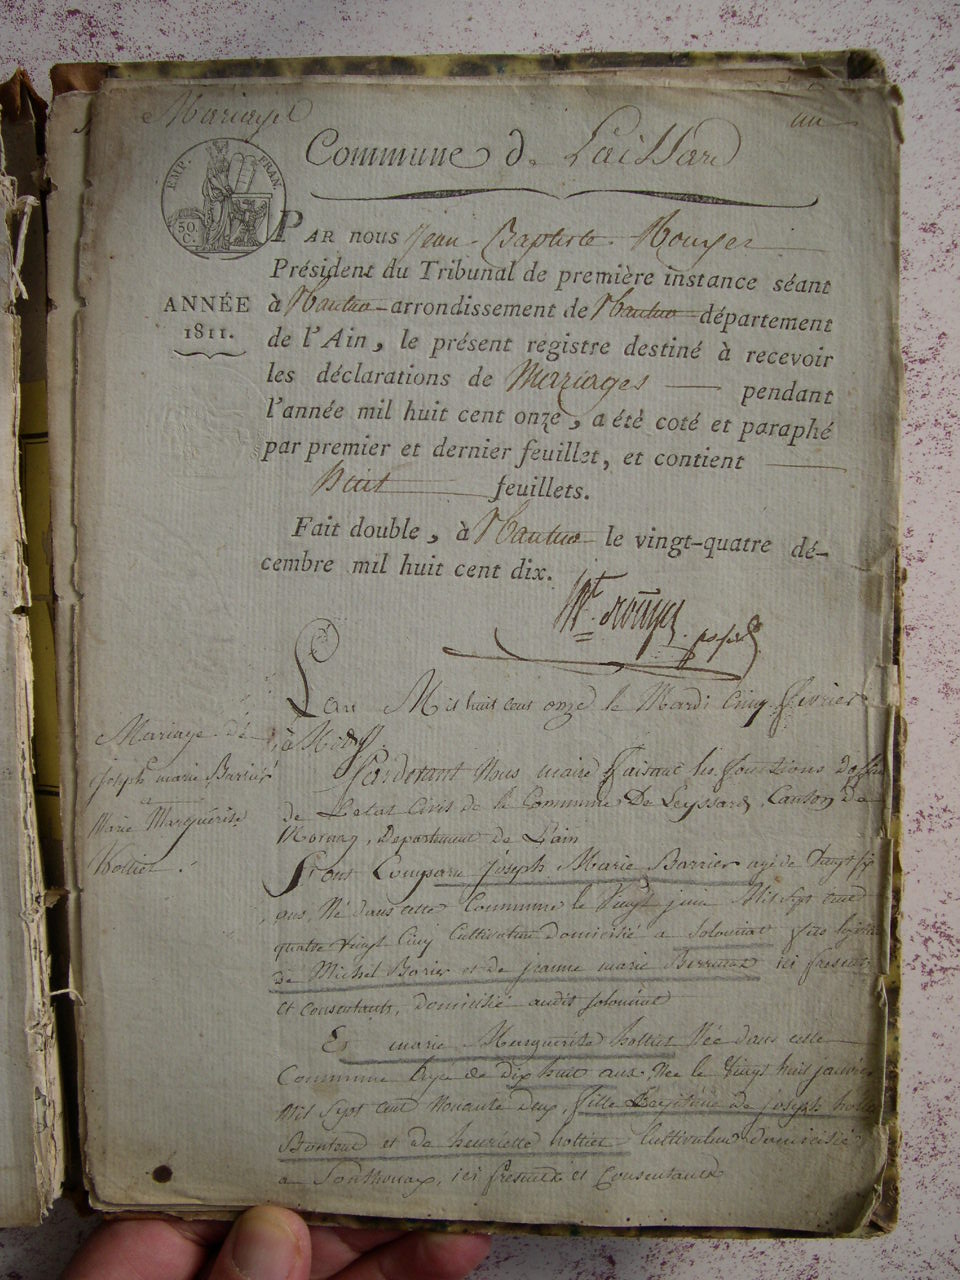 Mariages
un
Commune d. Laissard
EMP. FRAN.
30. C.
PAR nous Jean-Baptiste Rouyer
Président du Tribunal de première instance séant
ANNÉE
1811.
à Nantua arrondissement de Nantua département
de l'Ain, le présent registre destiné à recevoir
les déclarations de Mariages pendant
l'année mil huit cent onze, a étè coté et paraphé
par premier et dernier feuillet, et contient
huit feuillets.
Fait double, à Nantua le vingt-quatre dé-
cembre mil huit cent dix.
Bte. Rouyer
L'an Mil huit cent onze le Mardi Cinq fevrier
à Midy
Pardevant Nous maire faisant les fonctions d'offi
de L'etat Civil de la Commune De Leyssard, Canton de
Departement de L'ain
Mariage dé
joseph marie Barrier
et
Marie Marguérite
hottier.
Sont Comparu joseph Marie Barrier agé de Vingt six
ans, Né dans cette Commune le Vingt juin Mil Sept cent
quatre vingt Cinq Cultivateur domicilié a Solomiat fils légit
de Michel Barrier et de jeanne marie ici present
et consentants, domicilié audit solomiat
Et marie Marguérite hottier Née dans cette
Commune Agée de dix huit ans, Née le Vingt huit janvier
Mil Sept Cent Nonante deux, fille Legitime de joseph hottier
Bontout et de henriette hottier Cultivateur domicilié
a Ponthoux, ici present et Consentants